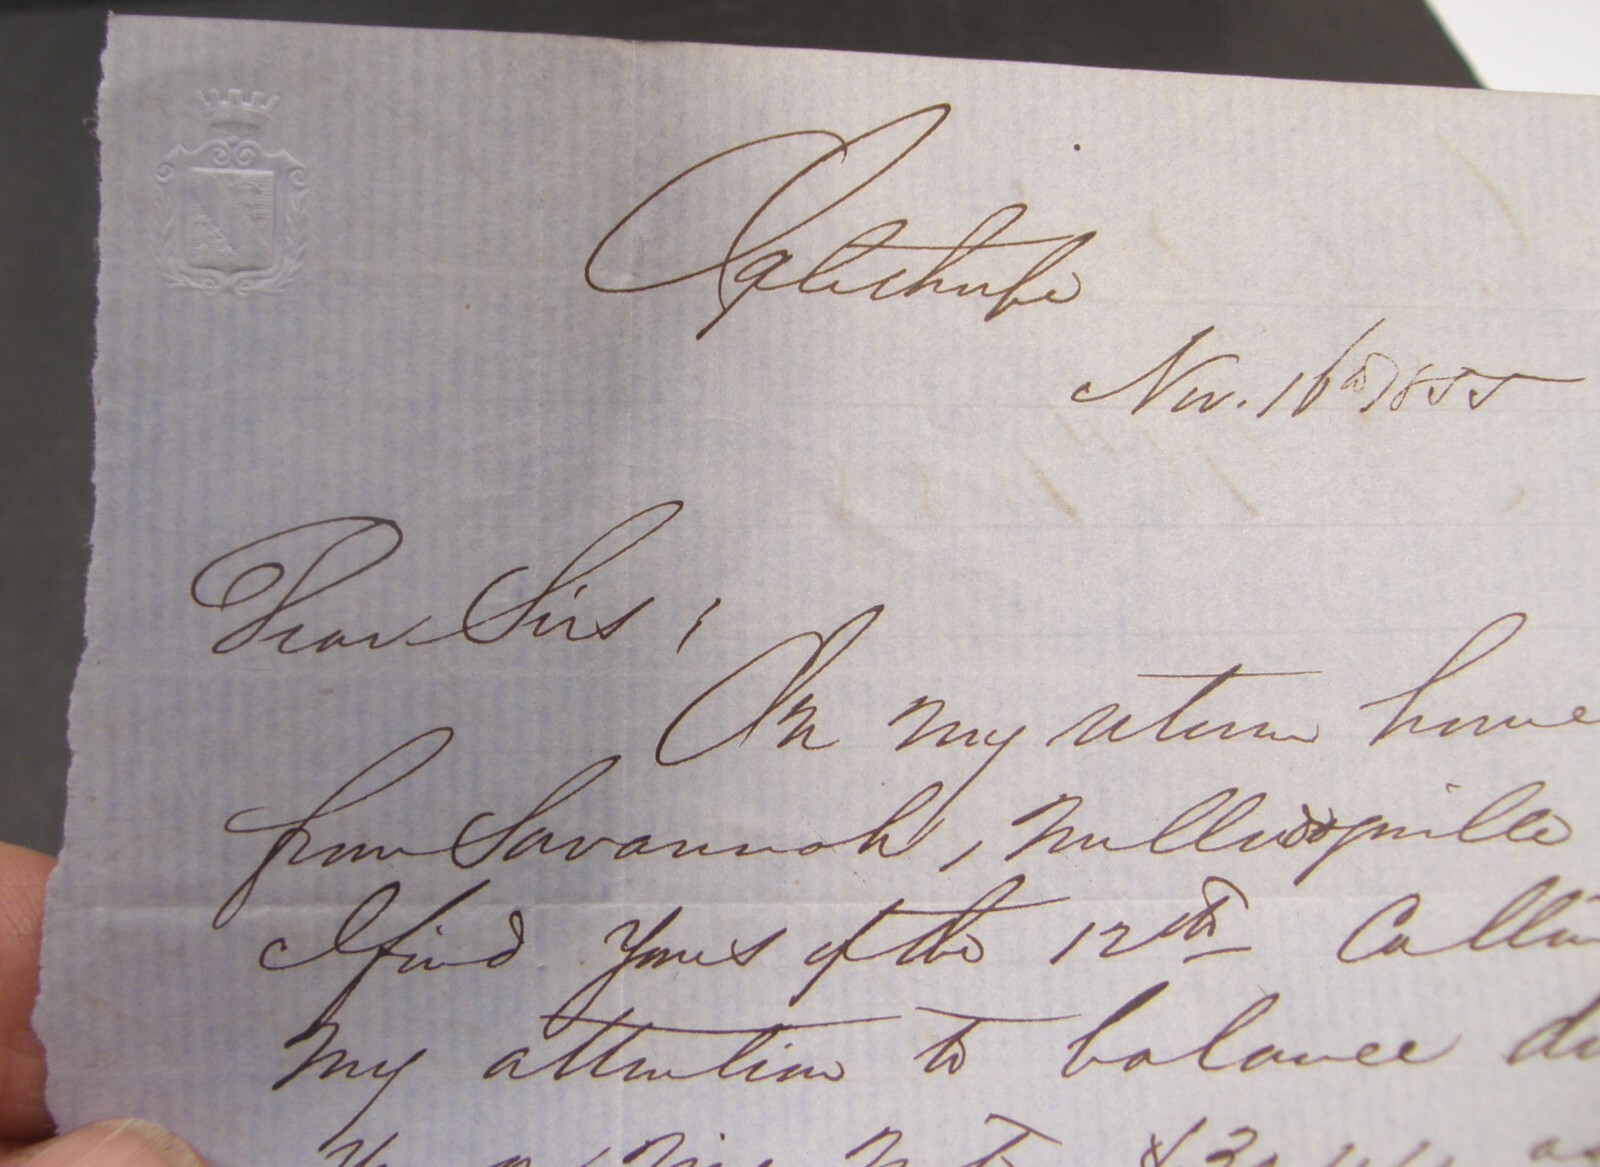 Nov. 16th 1855
Dear Sirs,
On my return home
from Savannah, Milledgeville
I find yours of the 12th Callin
my attention to balance du